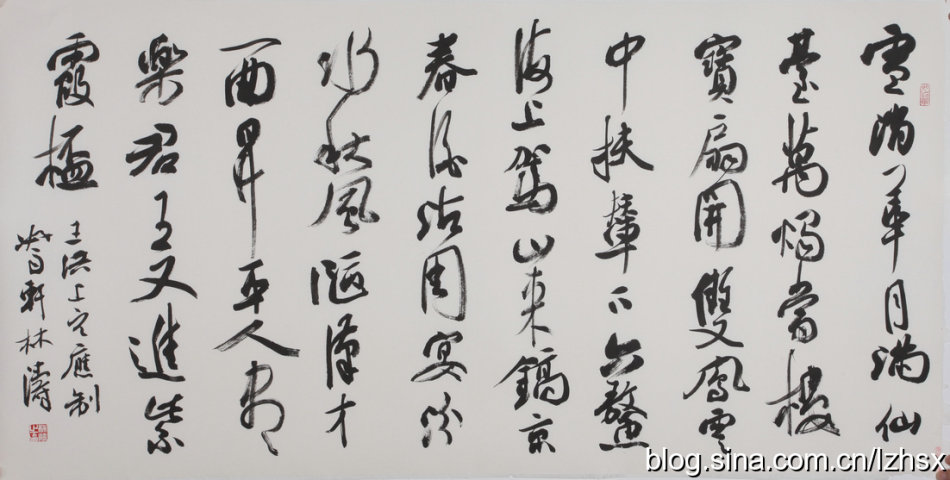 雪消華月滿仙
臺萬燭當樓
寶扇開雙鳳雲
中扶輦下六鰲
海上駕山來鎬京
春酒沾周宴汾
水秋風陋漢才
一曲昇平人盡
樂君王又進紫
霞杯
王淇上元應制
軒林濤
blog.sina.com.cn/lzhsx